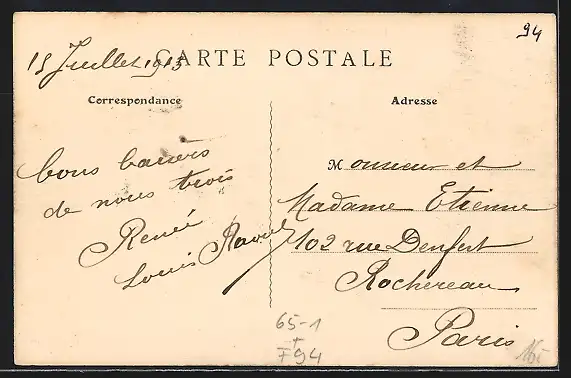 94
15 Juillet 1913
CARTE POSTALE
Correspondance
Adresse
bons baisers
de nous trois
Renée
Louis Raoul
Monsieur et
Madame Etienne
102 rue Denfert
Rochereau
Paris
65-1
+
F94